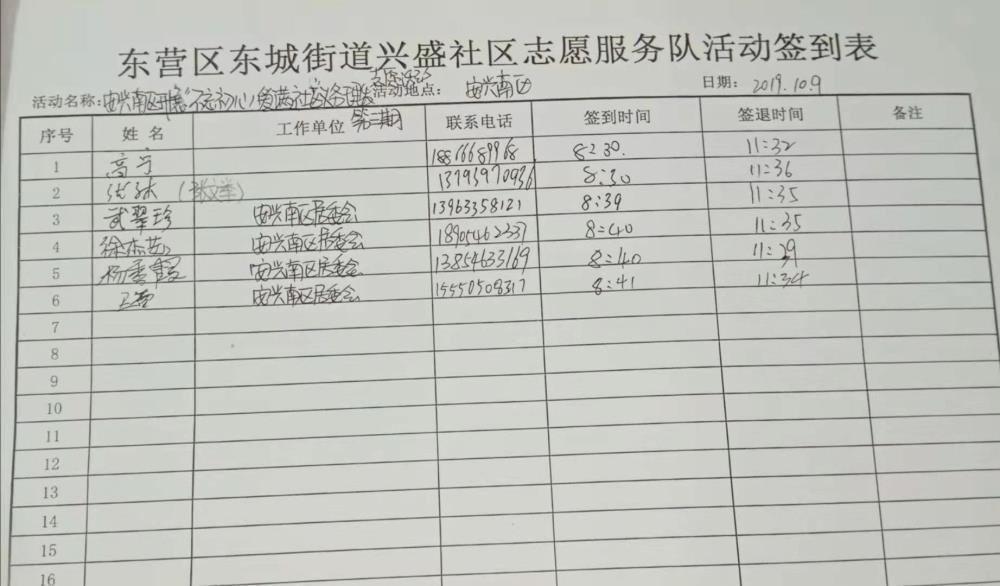 东营区东城街道兴盛社区志愿服务队活动签到表
活动名称: 安兴南区开展"不忘初心 爱满社区 活动地点: 安兴南区 日期: 2019.10.9
第三期
序号 姓名 工作单位 联系电话 签到时间 签退时间 备注
1 高宁 18866689968 8:30. 11:32
2 13793970936 8:30 11:36
3 武翠珍 安兴南区居委会 13963358121 8:39 11:35
4 徐杰茹 安兴南区居委会 18905462337 8:40 11:35
5 杨秀霞 安兴南区居委会 13854633169 8:40 11:29
6 安兴南区居委会 15550508317 8:41 11:34
7
8
9
10
11
12
13
14
15
16